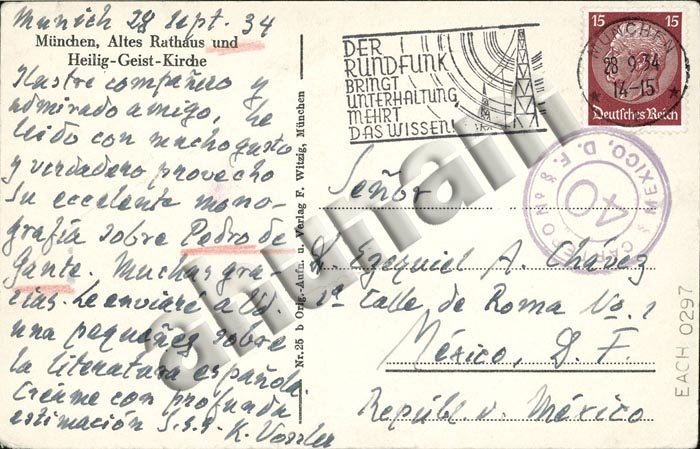 Munich 28 sept. 34
München, Altes Rathaus und
Heilig-Geist-Kirche
Ilustre compañero y
admirado amigo, he
leido con mucho gusto
y verdadero provecho
su excelente mono-
grafía sobre Pedro de
Gante. Muchas gra-
cias. Le enviaré a Vd.
una pequeñez sobre
la literatura española
Créame con profunda
estimación S.S.S. K. Vossler
Nr. 25 b Orig.-Aufn. u. Verlag F. Witzig, München
DER
RUNDFUNK
BRINGT
UNTERHALTUNG,
MEHRT
DAS WISSEN!
MÜNCHEN
28.9.34
14-15
15 15
Deutsches Reich
MEXICO, D. F.
40
Señor
D. Ezequiel A. Chávez
Calle de Roma No. 1
México, D. F.
Républ. d. México
EACH 0297
ahunam